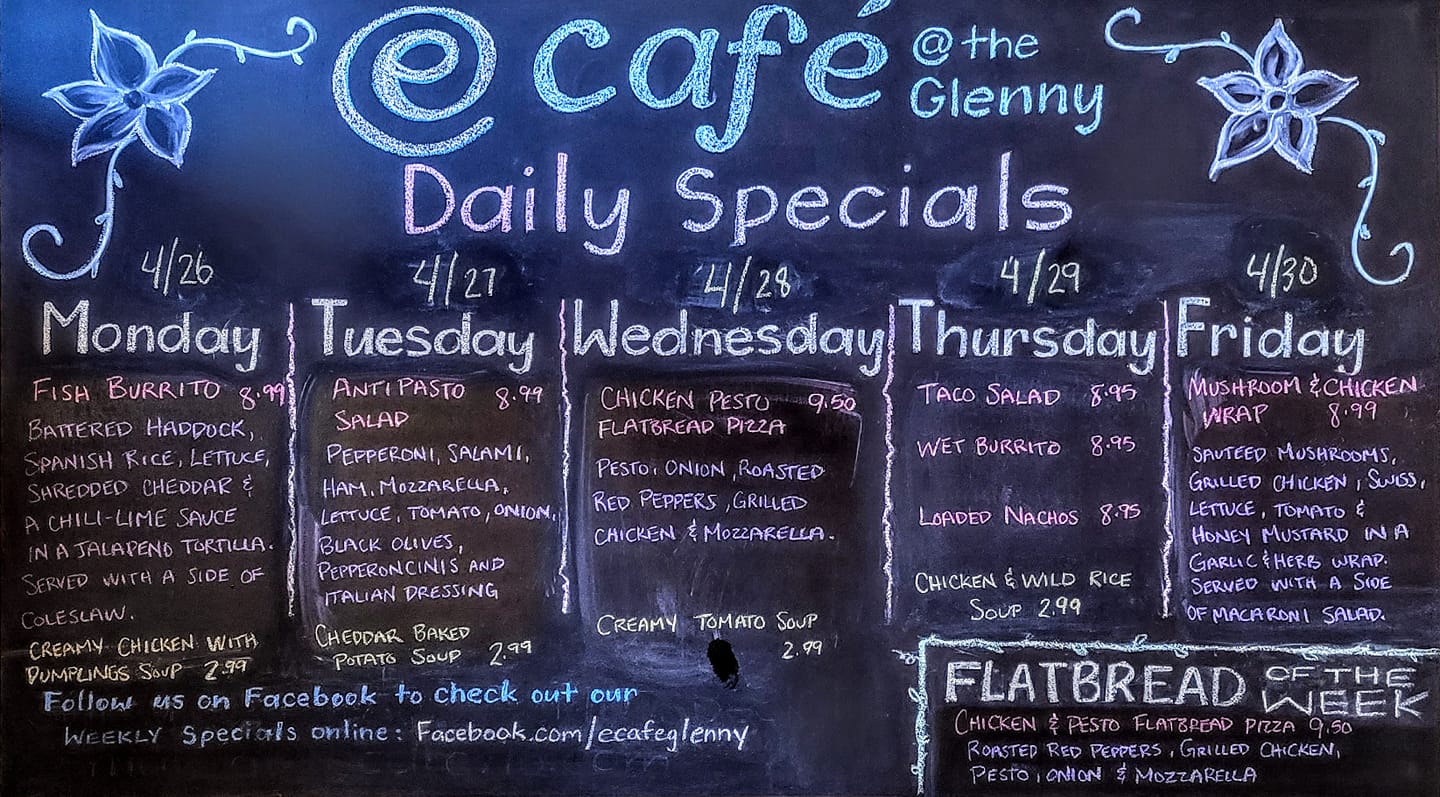 @ café @ the
Glenny
Daily Specials
4/26
Monday
FISH BURRITO 8.99
BATTERED HADDOCK,
SPANISH RICE, LETTUCE,
SHREDDED CHEDDAR &
A CHILI-LIME SAUCE
IN A JALAPENO TORTILLA.
SERVED WITH A SIDE OF
COLESLAW.
CREAMY CHICKEN WITH
DUMPLINGS SOUP 2.99
4/27
Tuesday
ANTIPASTO 8.99
SALAD
PEPPERONI, SALAMI,
HAM, MOZZARELLA,
LETTUCE, TOMATO, ONION,
BLACK OLIVES,
PEPPERONCINIS AND
ITALIAN DRESSING
CHEDDAR BAKED
POTATO SOUP 2.99
4/28
Wednesday
CHICKEN PESTO 9.50
FLATBREAD PIZZA
PESTO, ONION, ROASTED
RED PEPPERS, GRILLED
CHICKEN & MOZZARELLA.
CREAMY TOMATO SOUP
2.99
4/29
Thursday
TACO SALAD 8.95
WET BURRITO 8.95
LOADED NACHOS 8.95
CHICKEN & WILD RICE
SOUP 2.99
4/30
Friday
MUSHROOM & CHICKEN
WRAP 8.99
SAUTEED MUSHROOMS,
GRILLED CHICKEN, SWISS,
LETTUCE, TOMATO &
HONEY MUSTARD IN A
GARLIC & HERB WRAP.
SERVED WITH A SIDE
OF MACARONI SALAD.
Follow us on Facebook to check out our
WEEKLY Specials online: Facebook.com/ecafeglenny
FLATBREAD OF THE
WEEK
CHICKEN & PESTO FLATBREAD PIZZA 9.50
ROASTED RED PEPPERS, GRILLED CHICKEN,
PESTO, ONION & MOZZARELLA